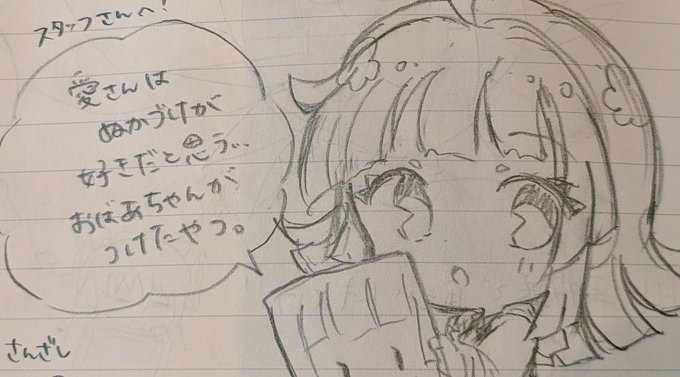 スタッフさんへ!
愛さんは
ぬかづけが
好きだと思う…
おばあちゃんが
つけたやつ。
さんざし